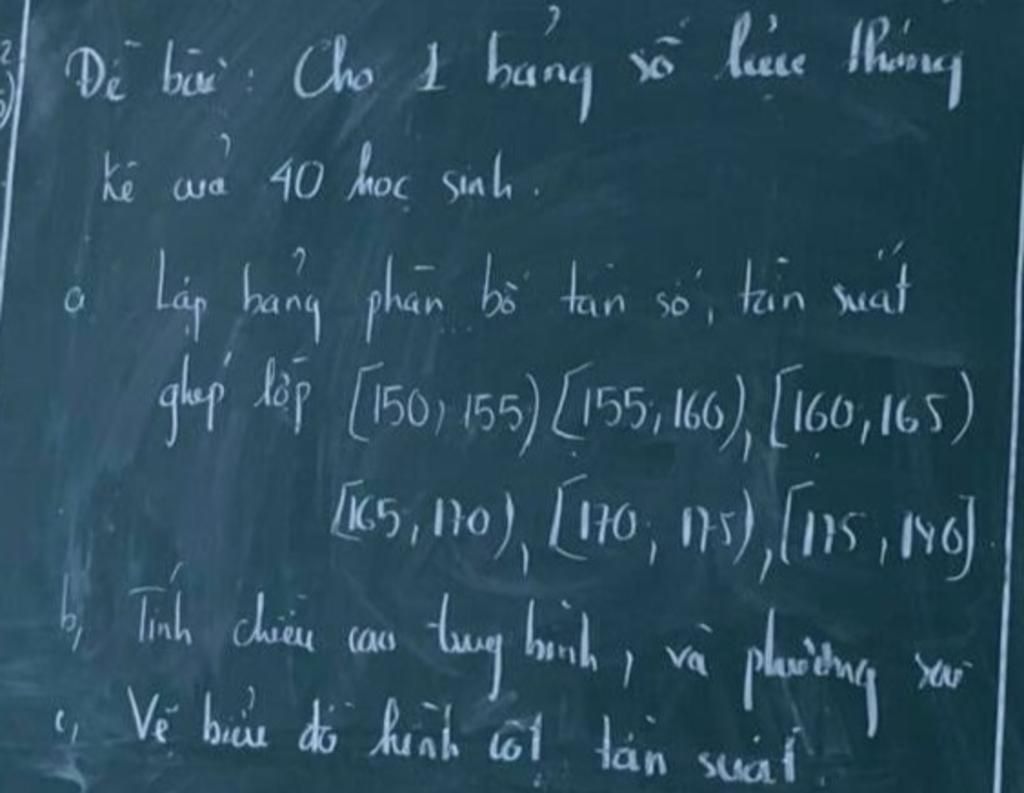 Đề bài: Cho 1 bảng số liệu thống
kê của 40 học sinh.
a Lập bảng phân bố tần số, tần suất
ghép lớp [150; 155) [155; 160), [160, 165)
[165, 170), [170; 175), [175, 180].
b, Tính chiều cao trung bình, và phương sai
c, Vẽ biểu đồ hình cột tần suất.